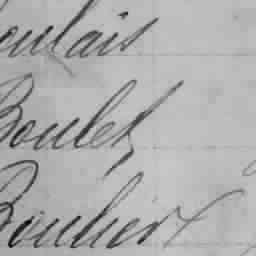 oulais
Boulet
Bouhert